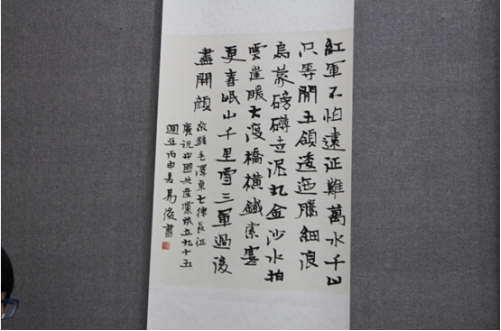 紅軍不怕遠征難萬水千山
只等閒五嶺逶迤騰細浪
烏蒙磅礴走泥丸金沙水拍
雲崖暖大渡橋橫鐵索寒
更喜岷山千里雪三軍過後
盡開顏
敬錄毛澤東七律長征
慶祝中國共產黨成立九十五
週年丙申易俊書